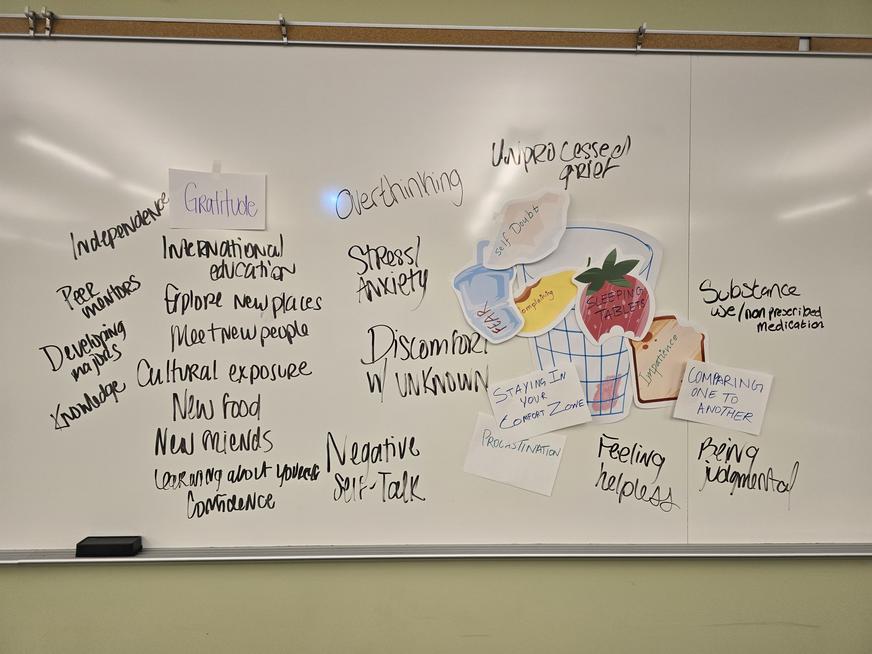 Gratitude
Independence
Peer
mentors
Developing
majors
Knowledge
International
education
Explore new places
Meet new people
Cultural exposure
New food
New friends
Learning about yourself
Confidence
Overthinking
Stress/
Anxiety
Discomfort
w/ unknown
Negative
Self-Talk
Unprocessed
grief
Self Doubt
FEAR
Complaining
SLEEPING
TABLETS
Impatience
STAYING IN
YOUR
COMFORT ZONE
PROCASTINATION
COMPARING
ONE TO
ANOTHER
Substance
use/non prescribed
medication
Feeling
helpless
Being
judgmental